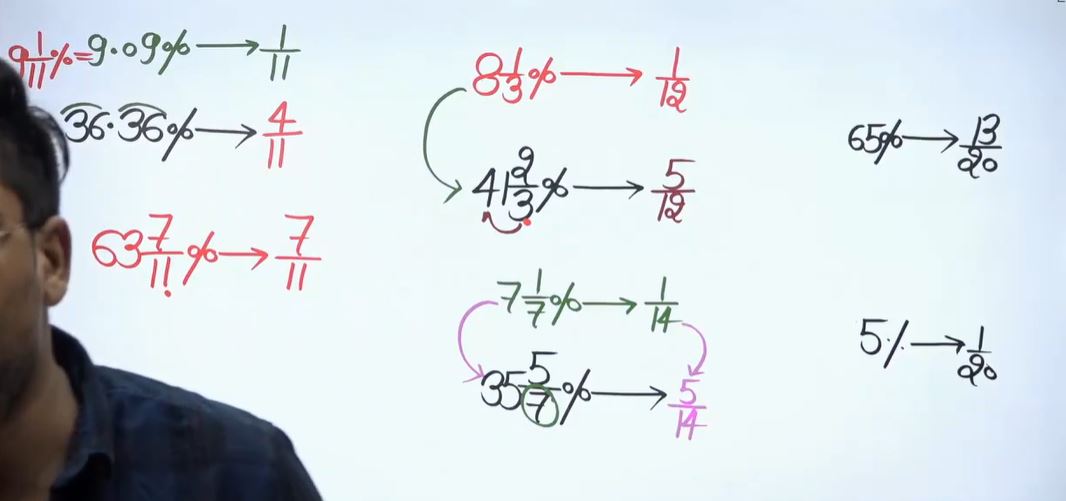 9 1/11% = 9.09% → 1/11
36.36% → 4/11
63 7/11% → 7/11
8 1/3% → 1/12
41 2/3% → 5/12
7 1/7% → 1/14
35 5/7% → 5/14
65% → 13/20
5% → 1/20